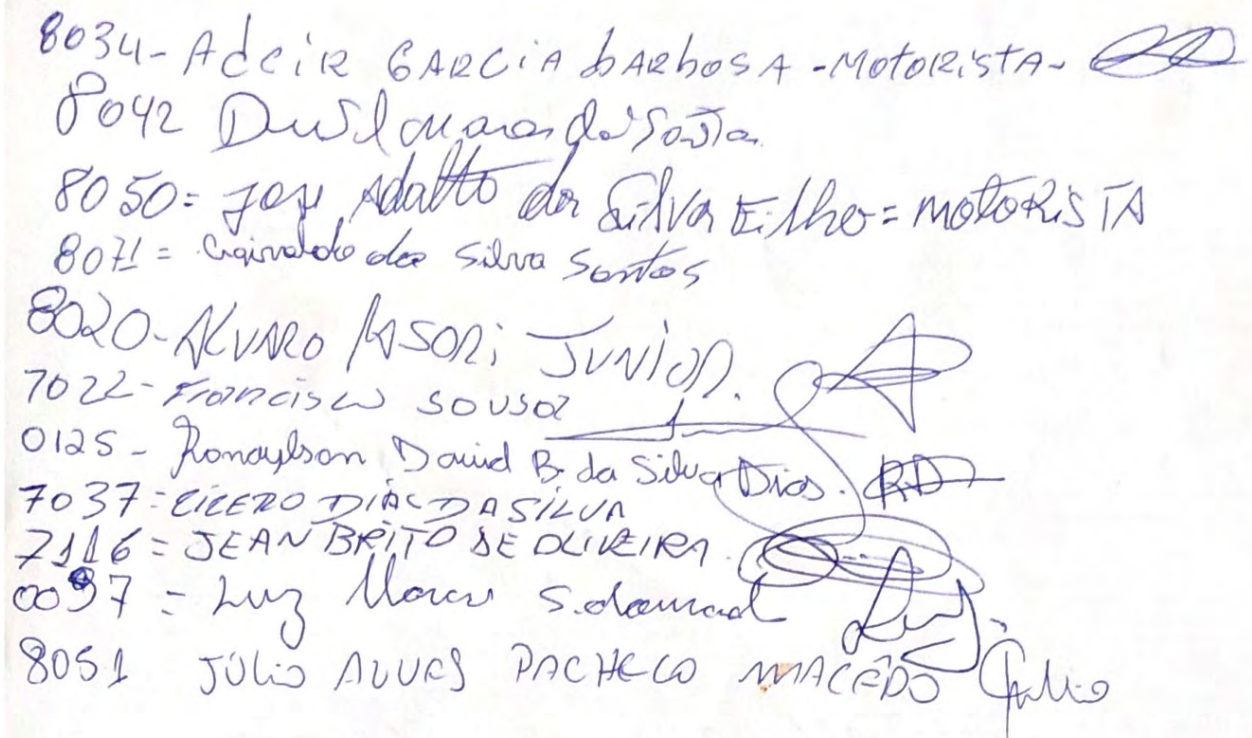 8034 - Adeir GARCIA bARbOSA - MOtORiStA -
8042
8050 = José Adalto da Silva Filho = MOTORiSTA
8071 = da Silva Santos
8020 - ALVARO MASORi JUNiOR.
7022 - Francisco SOUSA
0125 - Ronaylson David B. da Silva Dias. RD
7037 = CÍCERO DIAS DA SILVA
7116 = JEAN BRITO DE OLIVEIRA
0097 = Luz Marcos S.
8051 JÚLiO ALVES PACHECO MACÊDO Júlio